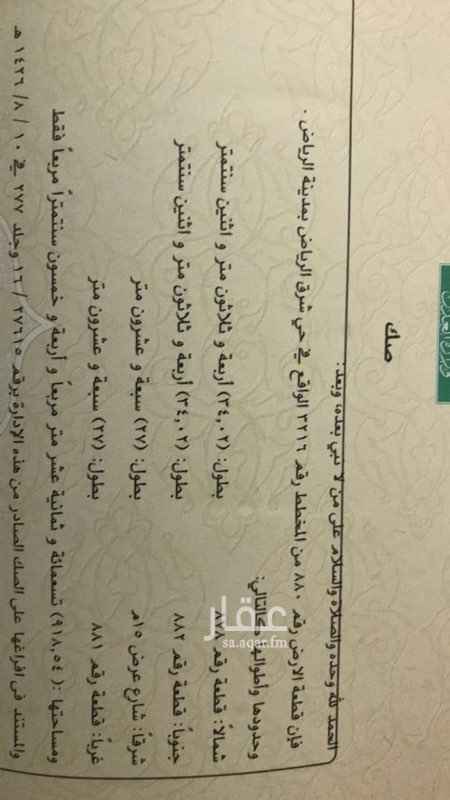 وزارة العدل
صك
الحمد لله وحده والصلاة والسلام على من لا نبي بعده، وبعد:
فإن قطعة الارض رقم ٨٨٠ من المخطط رقم ٣٢١٦ الواقع في حي شرق الرياض بمدينة الرياض .
وحدودها وأطوالها كالتالي:
شمالاً: قطعة رقم ٨٧٨ بطول: (٣٤,٠٢) أربعة و ثلاثون متر و اثنين سنتمتر
جنوباً: قطعة رقم ٨٨٢ بطول: (٣٤,٠٢) أربعة و ثلاثون متر و اثنين سنتمتر
شرقاً: شارع عرض ١٥م بطول: (٢٧) سبعة و عشرون متر
غرباً: قطعة رقم ٨٨١ بطول: (٢٧) سبعة و عشرون متر
ومساحتها :( ٩١٨,٥٤) تسعمائة و ثمانية عشر متر مربعاً و أربعة و خمسون سنتمتراً مربعاً فقط
والمستند في افراغها على الصك الصادر من هذه الإدارة برقم ٢٧٦١٥ / ١٦ وجلد ٢٧٧ في ١٠ / ٨ / ١٤٢٦ هـ
عقار
sa.aqar.fm